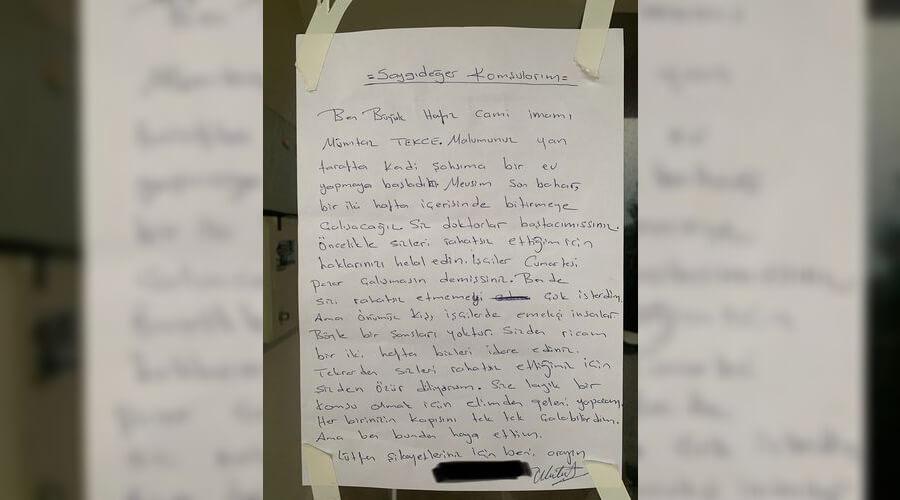 =Saygıdeğer Komşularım=
Ben Büyük Hafız Cami imamı
Mümtaz TEKCE. Malumunuz yan
tarafta kadi şahsıma bir ev
yapmaya başladık Mevsim Son bahar,
bir iki hafta içerisinde bitirmeye
Çalışacağız. Siz doktorlar baştacımıssınız.
Öncelikle sizleri rahatsız ettiğim için
haklarınızı helal edin. İşçiler Cumartesi
pazar çalışmasın demişsiniz. Ben de
sizi rahatsız etmemeyi çok isterdim.
Ama önümüz kış, işçilerde emekçi insanlar
Böyle bir şansları yoktur. Sizden ricam
bir iki hafta bizleri idare ediniz.
Tekrardan sizleri rahatsız ettiğimiz için
sizden özür diliyorum. Size layık bir
komşu olmak için elimden geleni yaparım.
Her birinizin kapısını tek tek çalabilirdim.
Ama ben bundan haya ettim.
Lütfen şikayetleriniz için beni arayın